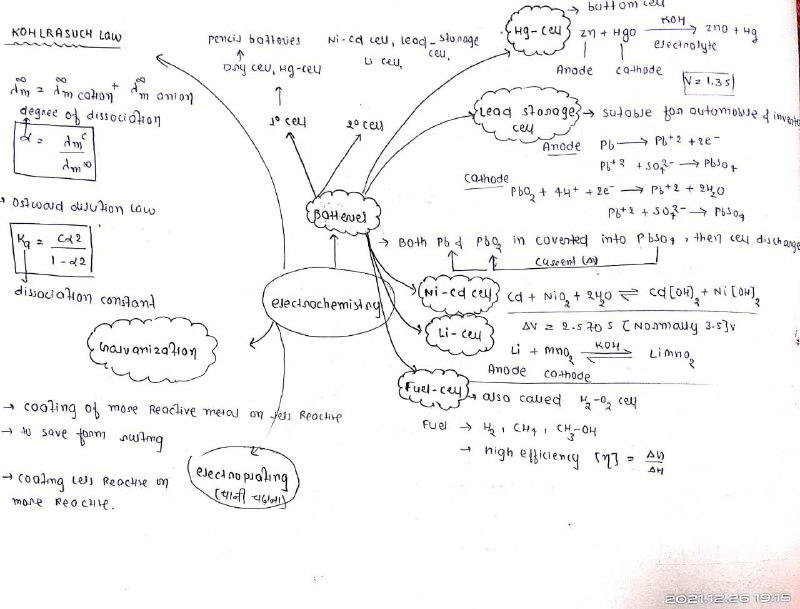 KOHLRASUCH LAW
λm∞ = λm∞ cation + λm∞ anion
degree of dissociation
α = λm^c / λm^∞
→ Ostward dilution law
Ka = Cα2 / 1 - α2
dissociation constant
Galvanization
→ coating of more Reactive metal on less Reactive
→ to save form rusting
→ coating Less Reactive on
more Reactive.
electroplating
electrochemistry
Batteries
pencil batteries
Dry cell, Hg-cell
1° cell
Ni-Cd cell, lead-storage
cell.
Li cell,
2° cell
Hg-cell
→ buttom cell
Zn + HgO —KOH→ ZnO + Hg
electrolyte
Anode cathode
V = 1.35
Lead storage
cell
→ sutable for automobile &
Anode Pb → Pb+2 + 2e-
Pb+2 + SO4 2- → PbSO4
cathode
PbO2 + 4H+ + 2e- → Pb+2 + 2H2O
Pb+2 + SO4 2- → PbSO4
→ Both Pb & PbO2 in coverted into PbSO4, then cell discharge
current
Ni-Cd cell
Cd + NiO2 + 2H2O ⇌ Cd[OH]2 + Ni[OH]2
Li-cell
ΔV = 2.570 S [Normally 3.5]V
Li + mnO2 —KOH⇌ Limno2
Anode cathode
Fuel-cell
→ also called H2-O2 cell
Fuel → H2, CH4, CH3-OH
→ high efficiency [η] =
2021.12.26 19:15